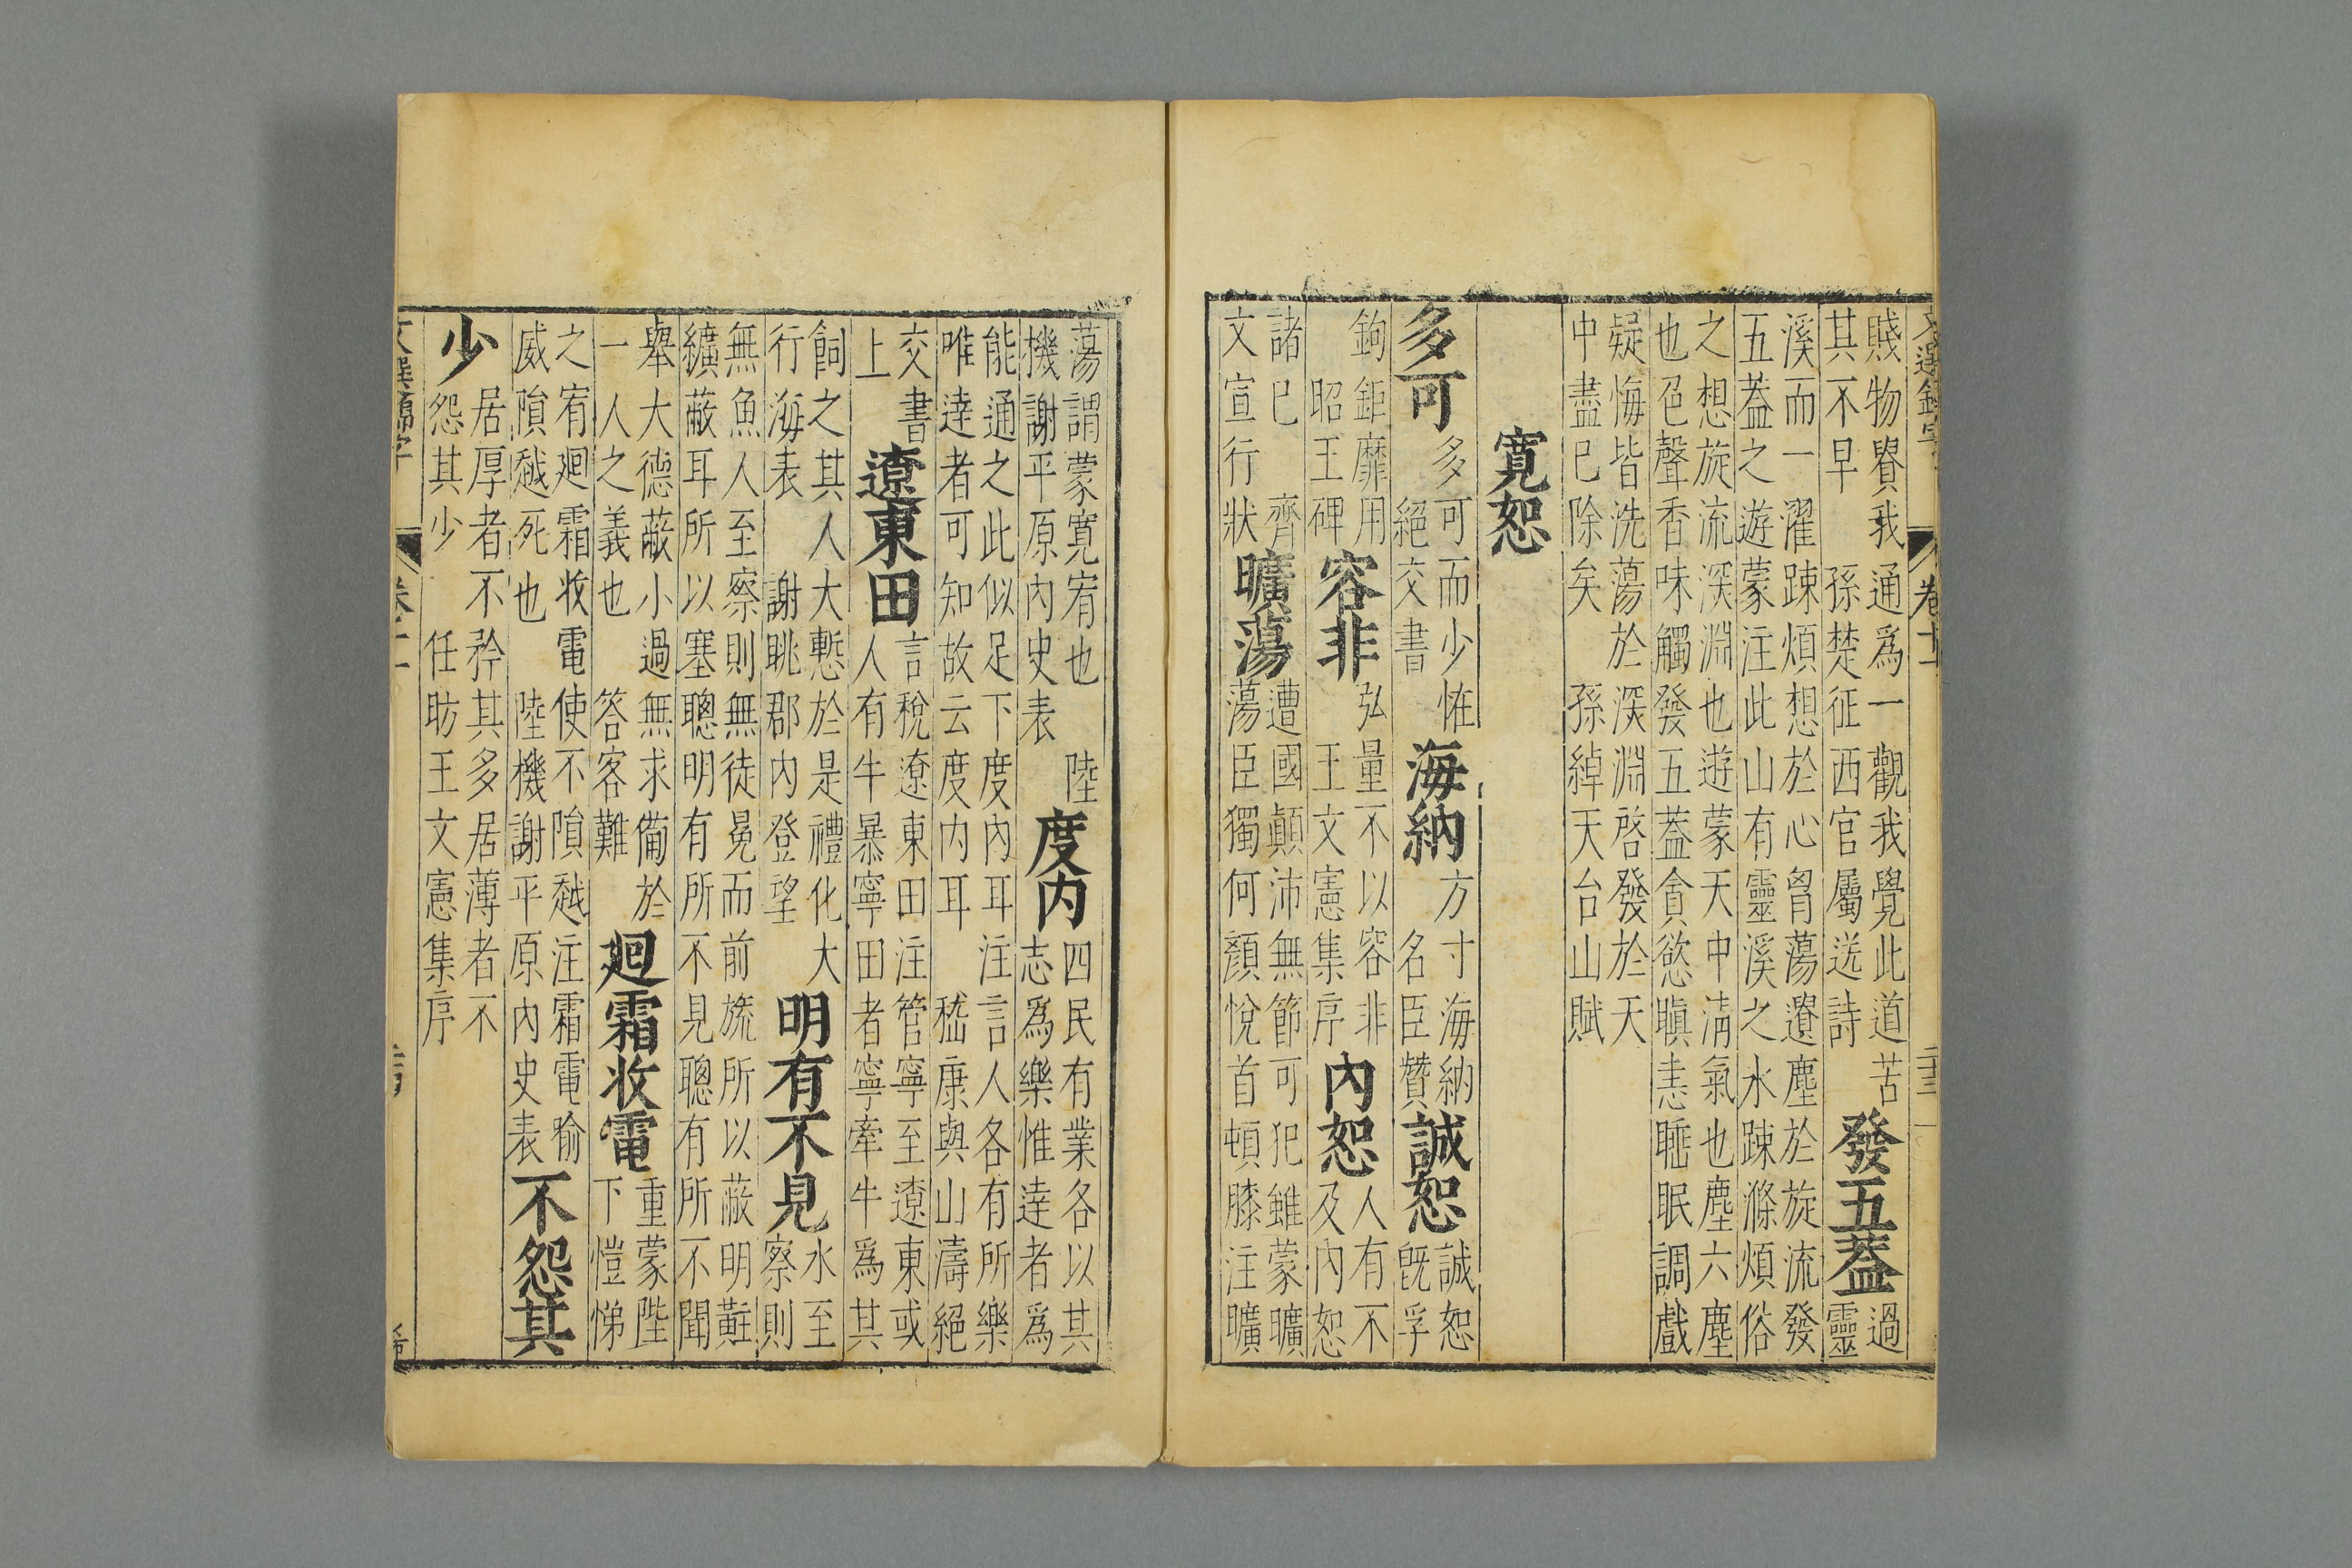 文選錦字 卷十一 二十三
賤物貴我通爲一觀我覺此道苦
其不早 孫楚征西官屬送詩
發五蓋
過
靈
溪而一濯踈煩想於心胷蕩遺塵於旋流發
五蓋之遊蒙注此山有靈溪之水踈滌煩俗
之想旋流深淵也遊蒙天中清氣也塵六塵
也色聲香味觸發五蓋貪慾瞋恚睡眠調戲
疑悔皆洗蕩於深淵啓發於天
中盡已除矣 孫綽天台山賦
寬恕
多可
多可而少恠
絕交書
海納
方寸海納
名臣贊
誠恕
誠恕
旣孚
鉤鉅靡用
昭王碑
容非
弘量不以容非
王文憲集序
內恕
人有不
及內恕
諸已 齊
文宣行狀
曠蕩
遭國顛沛無節可犯雖蒙曠
蕩臣獨何顏悅首頓膝注曠
蕩謂蒙寬宥也 陸
機謝平原內史表
度内
四民有業各以其
志爲樂惟達者爲
能通之此似足下度內耳注言人各有所樂
唯達者可知故云度内耳 嵇康與山濤絕
交書
上
遼東田
言稅遼東田注管寧至遼東或
人有牛暴寧田者寧牽牛爲其
飼之其人大慙於是禮化大
行海表 謝眺郡內登望
明有不見
水至
察則
無魚人至察則無徒冕而前旒所以蔽明黈
纊蔽耳所以塞聰明有所不見聰有所不聞
舉大德蔽小過無求備於
一人之義也 答客難
廻霜收電
重蒙陛
下愷悌
之宥廻霜收電使不隕越注霜電喻
威隕越死也 陸機謝平原內史表
不怨其
少
居厚者不矜其多居薄者不
怨其少 任昉王文憲集序